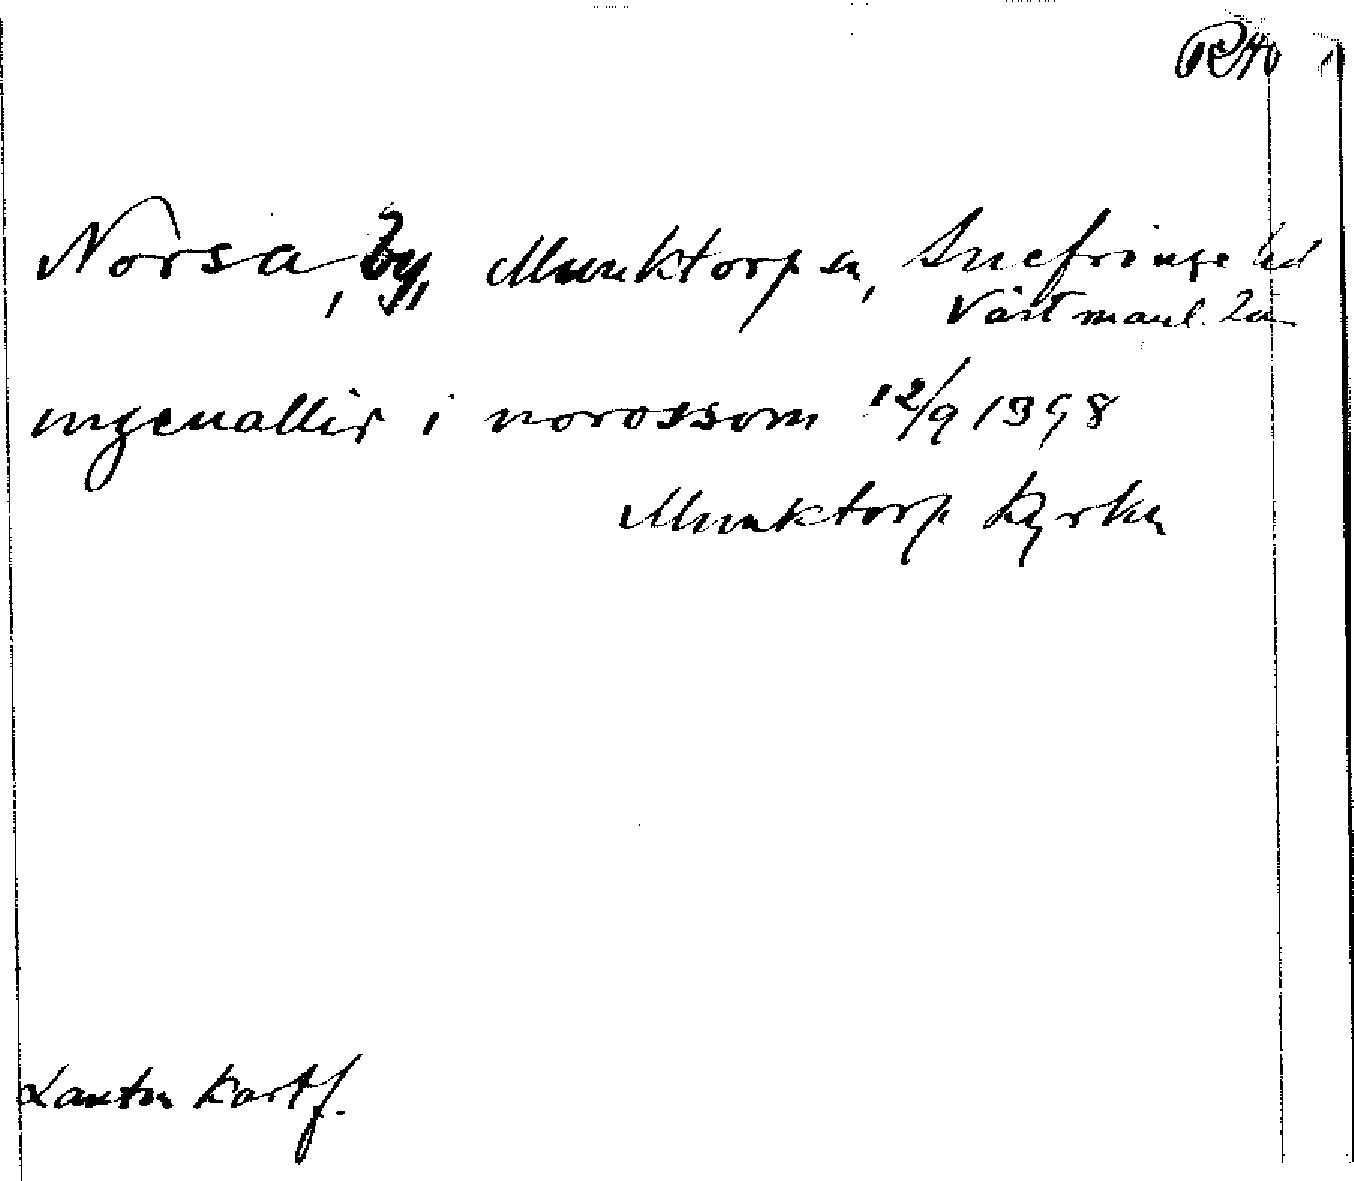 RAp
Norsa, by, Munktorp sn, Snefringe hd
Västmanl. län
ingeuallir i norossom 12/9 1398
Munktorp kyrka
Lantm kart f.